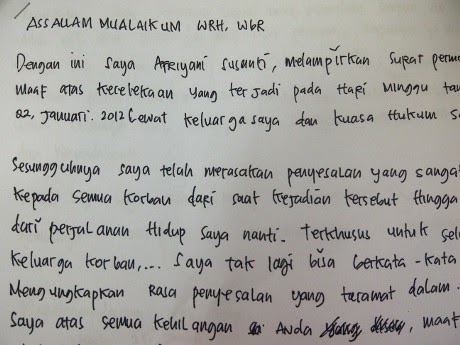 ASSALLAM MUALAIKUM WRH, WbR
Dengan ini saya Afriyani susanti, melampirkan surat permo
maaf atas kecelekaan yang terjadi pada Hari Minggu tan
22, januari. 2012 Lewat keluarga saya dan kuasa Hukum sa
Sesungguhnya saya telah merasakan penyesalan yang sangat
kepada semua korban dari saat kejadian tersebut hingga
dari perjalanan Hidup saya nanti. Terkhusus untuk sel
keluarga korban,... Saya tak lagi bisa berkata-kata
Mengungkapkan Rasa penyesalan yang teramat dalam.
Saya atas semua kehilangan Anda maaf